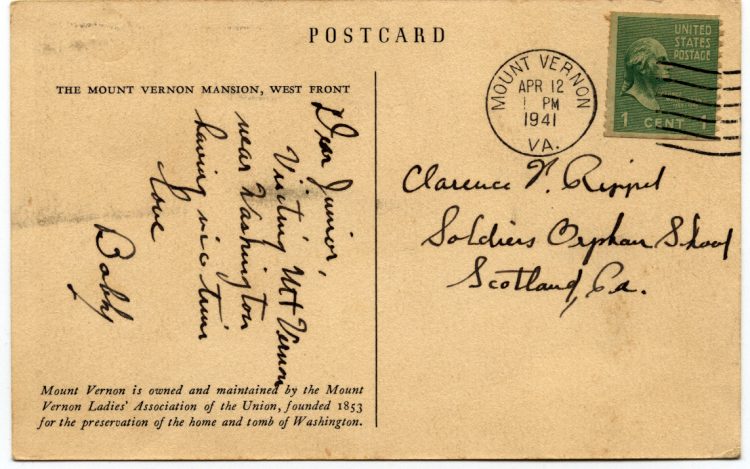 POSTCARD
THE MOUNT VERNON MANSION, WEST FRONT
Dear Junior,
Visiting Mt Vernon
near Washington
having nice time
Love
Bobby
Mount Vernon is owned and maintained by the Mount
Vernon Ladies' Association of the Union, founded 1853
for the preservation of the home and tomb of Washington.
MOUNT VERNON
APR 12
1 PM
1941
VA.
UNITED
STATES
POSTAGE
1 CENT 1
Clarence V. Rippel
Soldiers Orphan School
Scotland, Pa.